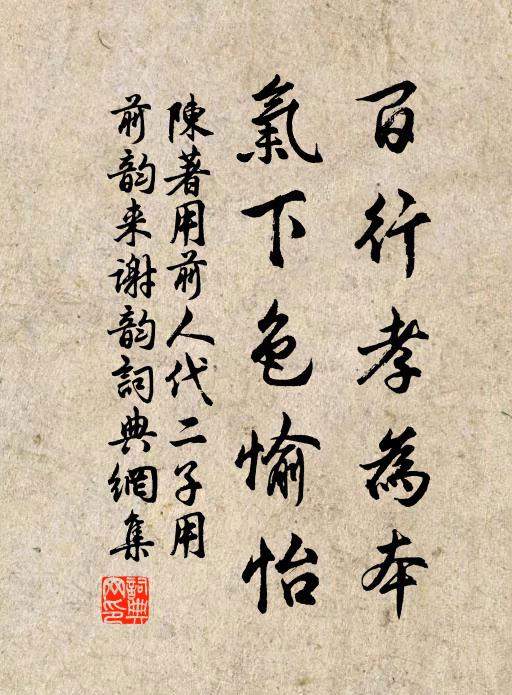 百行孝為本
氣下色愉怡
陳著用前人代二子用
前韵来谢韵詞典網集
詞典網印